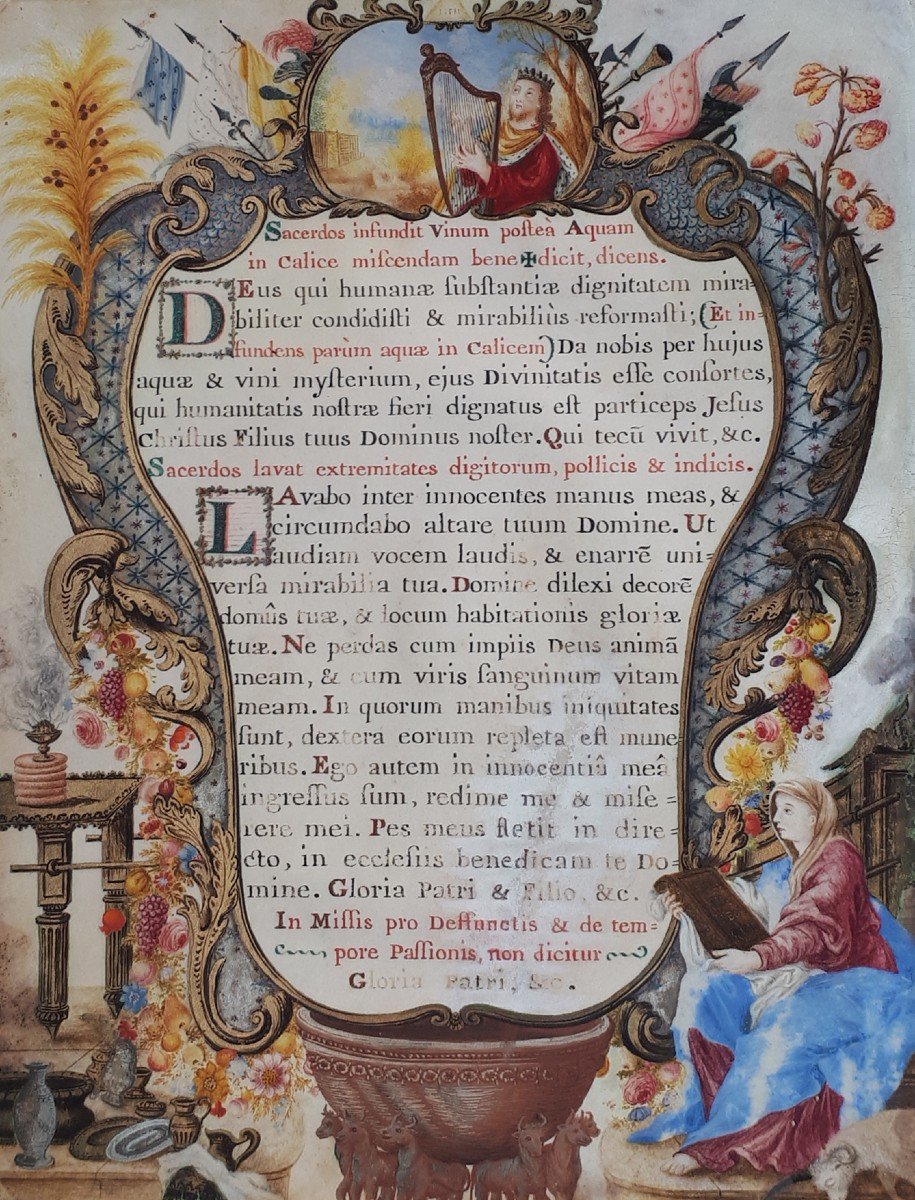 Sacerdos infundit Vinum poſtea Aquam
in Calice miſcendam bene✠dicit, dicens.
DEus qui humanæ ſubſtantiæ dignitatem mira-
biliter condidiſti & mirabiliùs reformaſti; (Et in=
fundens parùm aquæ in Calicem) Da nobis per hujus
aquæ & vini myſterium, ejus Divinitatis eſſe conſortes,
qui humanitatis noſtræ fieri dignatus eſt particeps Jeſus
Chriſtus Filius tuus Dominus noſter. Qui tecũ vivit, &c.
Sacerdos lavat extremitates digitorum, pollicis & indicis.
LAvabo inter innocentes manus meas, &
circumdabo altare tuum Domine. Ut
audiam vocem laudis, & enarrẽ uni=
verſa mirabilia tua. Domine dilexi decorẽ
domûs tuæ, & locum habitationis gloriæ
tuæ. Ne perdas cum impiis Deus animã
meam, & cum viris ſanguinum vitam
meam. In quorum manibus iniquitates
ſunt, dextera eorum repleta eſt mune=
ribus. Ego autem in innocentiâ meâ
ingreſſus ſum, redime me & miſe=
rere mei. Pes meus ſtetit in dire=
cto, in eccleſiis benedicam te Do=
mine. Gloria Patri & Filio, &c.
In Miſſis pro Deffunctis & de tem=
pore Paſſionis, non dicitur
Gloria Patri, &c.